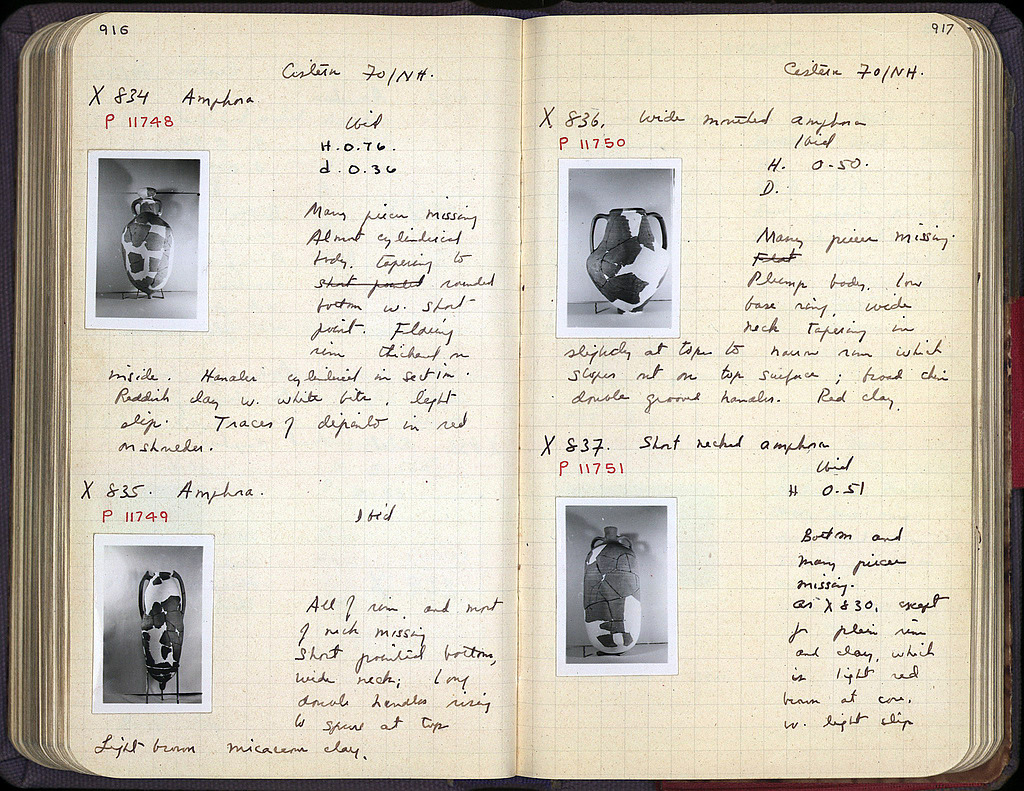 916
Cistern 70/NH.
X 834 Amphora
P 11748
Ibid
H. 0.76.
d. 0.36
Many pieces missing
Almost cylindrical
body, tapering to
short pointed rounded
bottom w. short
point. Flaring
rim thickened on
inside. Handles cylindrical in section.
Reddish clay w. white bits, light
slip. Traces of dipinto in red
on shoulder.
X 835. Amphora.
P 11749
Ibid
All of rim and most
of neck missing
Short pointed bottom,
wide neck; long
double handles rising
to spurs at top
Light brown micaceous clay.
917
Cistern 70/NH.
X 836. Wide mouthed amphora
P 11750
Ibid
H. 0.50.
D.
Many pieces missing.
Flat
Plump body, low
base ring, wide
neck tapering in
slightly at top to narrow rim which
slopes out on top surface; broad thin
double grooved handles. Red clay.
X 837. Short necked amphora
P 11751
Ibid
H 0.51
Bottom and
many pieces
missing.
as X 830, except
for plain rim
and clay, which
is light red
brown at core,
w. light slip